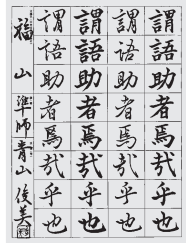 謂語助者焉哉乎也
謂語助者焉哉乎也
謂語助者焉哉乎也
謂語助者焉哉乎也
福山 準師 青山俊美